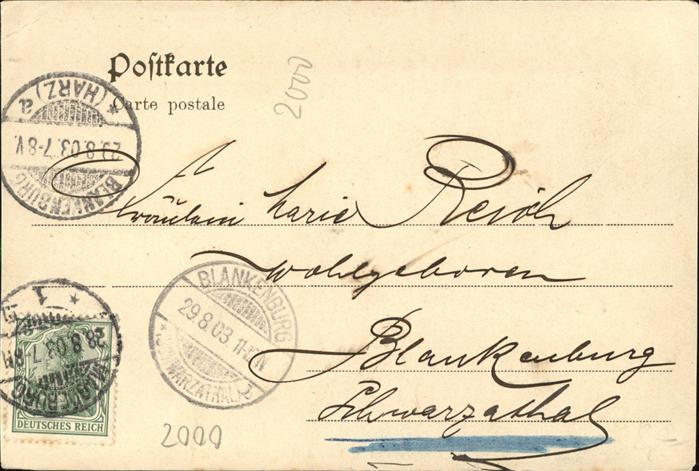 Postkarte
Carte postale
2000
BLANKENBURG
* (HARZ) a
29.8.03.7-8V.
Fräulein Marie Reich
Wohlgeboren
Blankenburg
Schwarzathal
BLANKENBURG
29.8.03. 11-12N
* (SCHWARZATHAL)
1 *
28.8.03.7-8N
DEUTSCHES REICH
2000